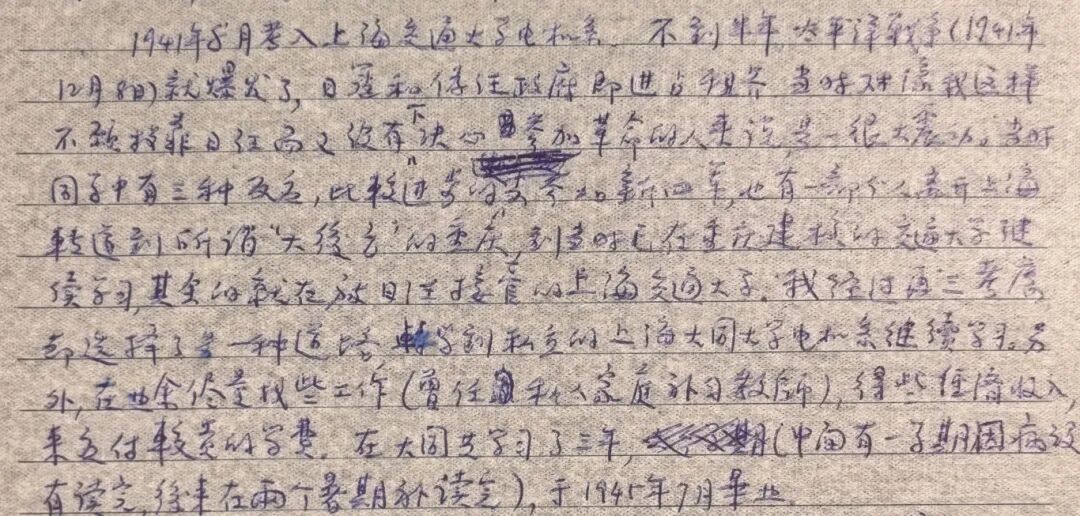 1941年8月考入上海交通大学电机系. 不到半年太平洋战争(1941年
12月8日)就爆发了, 日寇和伪汪政府即进占租界 当时对像我这样
不愿投靠日汪而又没有下决心参加革命的人来说是一很大震动。当时
同学中有三种反应, 比较进步的去参加新四军, 也有一部分人离开上海
转道到所谓“大後方”的重庆, 到当时已在重庆建校的交通大学继
续学习, 其余的就在被日汪接管的上海交通大学. 我经过再三考虑
却选择了另一种道路, 转学到私立的上海大同大学电机系继续学习. 另
外, 在业余尽量找些工作(曾任私人家庭补习教师), 得些经济收入,
来支付较贵的学费. 在大同共学习了三年, (中间有一学期因病没
有读完, 后来在两个暑期补读完), 于1945年7月毕业.